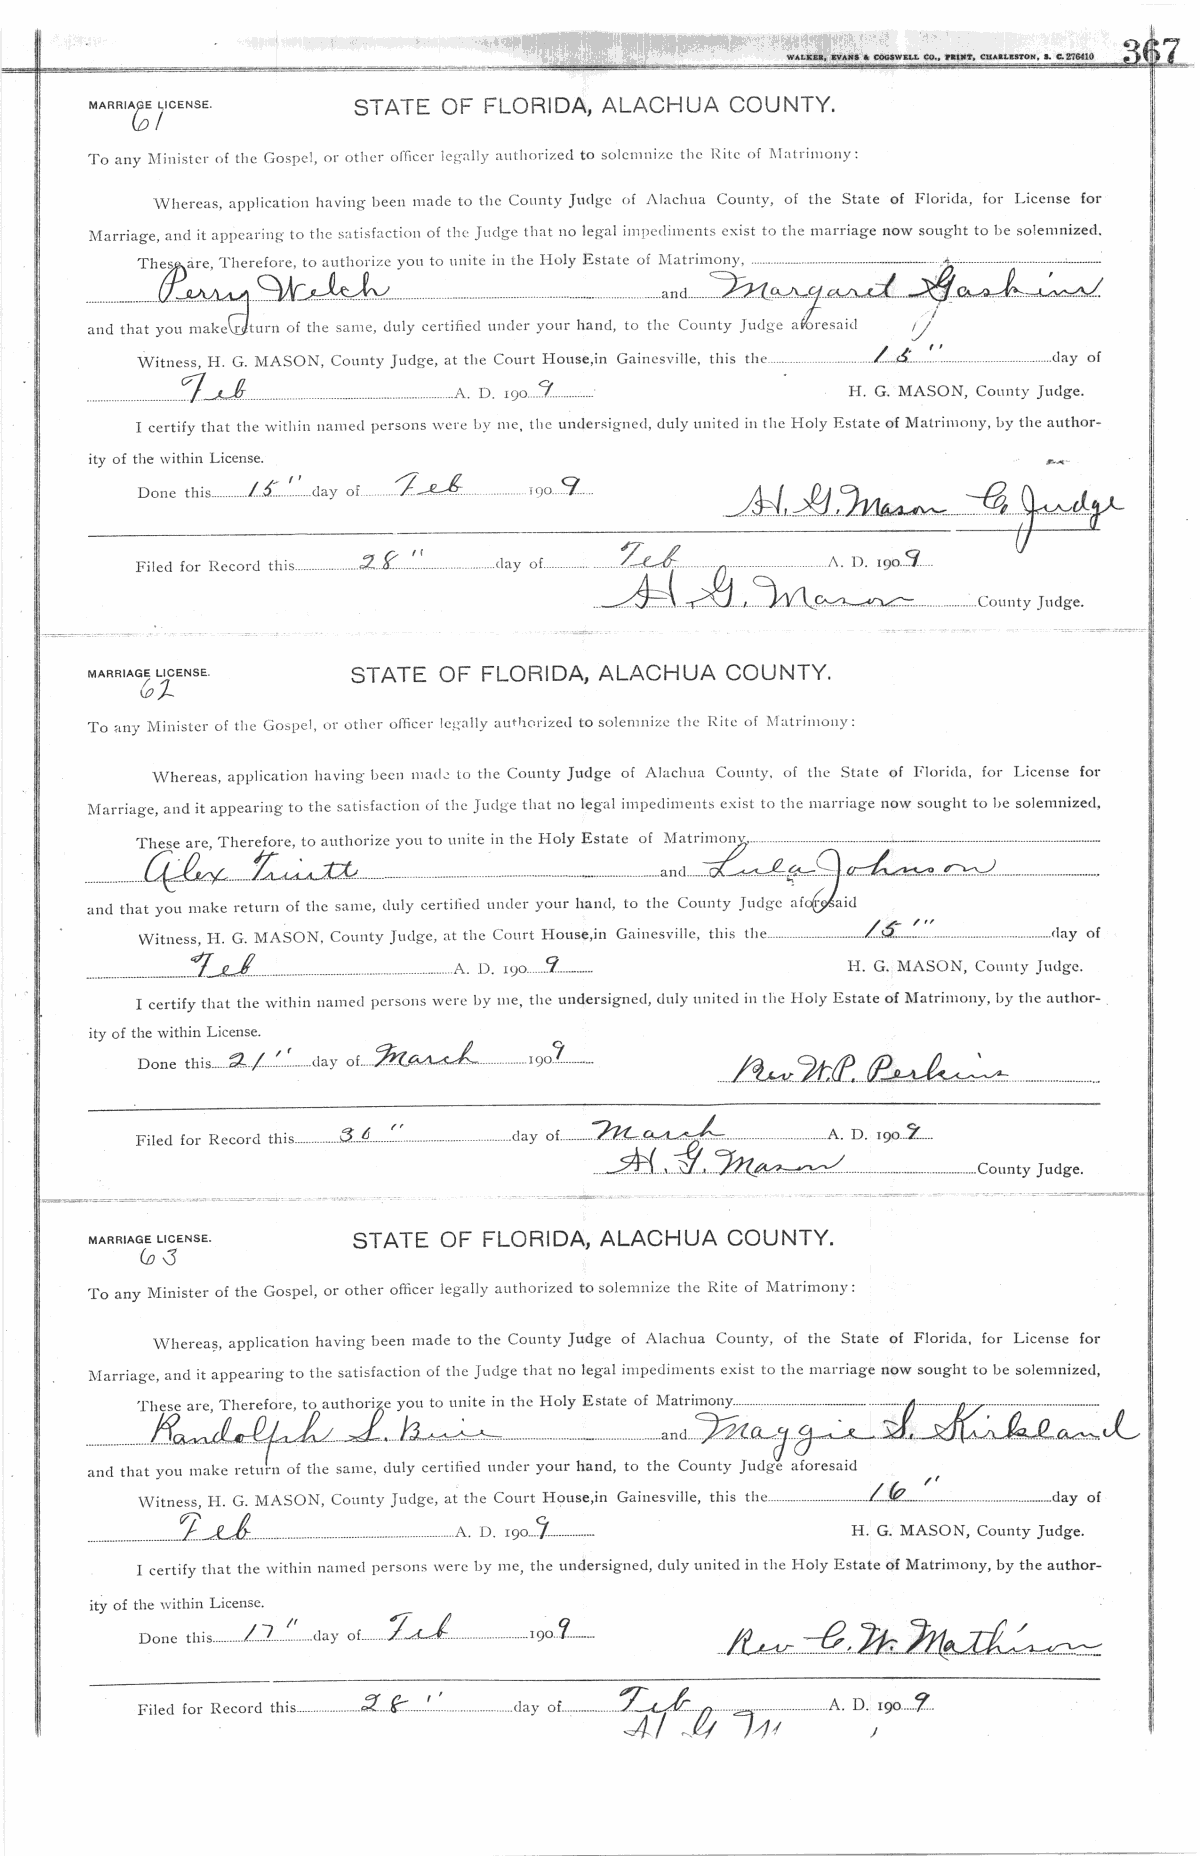 WALKER, EVANS & COGSWELL CO., PRINT, CHARLESTON, S. C. 276410 367
MARRIAGE LICENSE. STATE OF FLORIDA, ALACHUA COUNTY.
61
To any Minister of the Gospel, or other officer legally authorized to solemnize the Rite of Matrimony:
Whereas, application having been made to the County Judge of Alachua County, of the State of Florida, for License for
Marriage, and it appearing to the satisfaction of the Judge that no legal impediments exist to the marriage now sought to be solemnized,
These are, Therefore, to authorize you to unite in the Holy Estate of Matrimony,
Perry Welch and Margaret Gaskins
and that you make return of the same, duly certified under your hand, to the County Judge aforesaid
Witness, H. G. MASON, County Judge, at the Court House, in Gainesville, this the 15" day of
Feb A. D. 1909 H. G. MASON, County Judge.
I certify that the within named persons were by me, the undersigned, duly united in the Holy Estate of Matrimony, by the author-
ity of the within License.
Done this 15" day of Feb 1909
H. G. Mason Co. Judge
Filed for Record this 28" day of Feb A. D. 1909
H. G. Mason County Judge.
MARRIAGE LICENSE. STATE OF FLORIDA, ALACHUA COUNTY.
62
To any Minister of the Gospel, or other officer legally authorized to solemnize the Rite of Matrimony:
Whereas, application having been made to the County Judge of Alachua County, of the State of Florida, for License for
Marriage, and it appearing to the satisfaction of the Judge that no legal impediments exist to the marriage now sought to be solemnized,
These are, Therefore, to authorize you to unite in the Holy Estate of Matrimony,
Alex and Lula Johnson
and that you make return of the same, duly certified under your hand, to the County Judge aforesaid
Witness, H. G. MASON, County Judge, at the Court House, in Gainesville, this the 15"' day of
Feb A. D. 1909 H. G. MASON, County Judge.
I certify that the within named persons were by me, the undersigned, duly united in the Holy Estate of Matrimony, by the author-
ity of the within License.
Done this 21" day of March 1909
Rev W. P. Perkins
Filed for Record this 30" day of March A. D. 1909
H. G. Mason County Judge.
MARRIAGE LICENSE. STATE OF FLORIDA, ALACHUA COUNTY.
63
To any Minister of the Gospel, or other officer legally authorized to solemnize the Rite of Matrimony:
Whereas, application having been made to the County Judge of Alachua County, of the State of Florida, for License for
Marriage, and it appearing to the satisfaction of the Judge that no legal impediments exist to the marriage now sought to be solemnized,
These are, Therefore, to authorize you to unite in the Holy Estate of Matrimony
Randolph S. Buie and Maggie S. Kirkland
and that you make return of the same, duly certified under your hand, to the County Judge aforesaid
Witness, H. G. MASON, County Judge, at the Court House, in Gainesville, this the 16" day of
Feb A. D. 1909 H. G. MASON, County Judge.
I certify that the within named persons were by me, the undersigned, duly united in the Holy Estate of Matrimony, by the author-
ity of the within License.
Done this 17" day of Feb 1909
Rev C. W. Mathison
Filed for Record this 28" day of Feb A. D. 1909
H G M